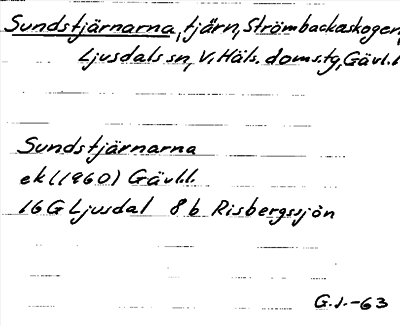 Sundstjärnarna, tjärn, Strömbackaskogen,
Ljusdals sn, V. Häls. doms.tg, Gävl.l.
Sundstjärnarna
ek (1960) Gävl.l.
16 G Ljusdal 8 b Risbergssjön
G.J.-63